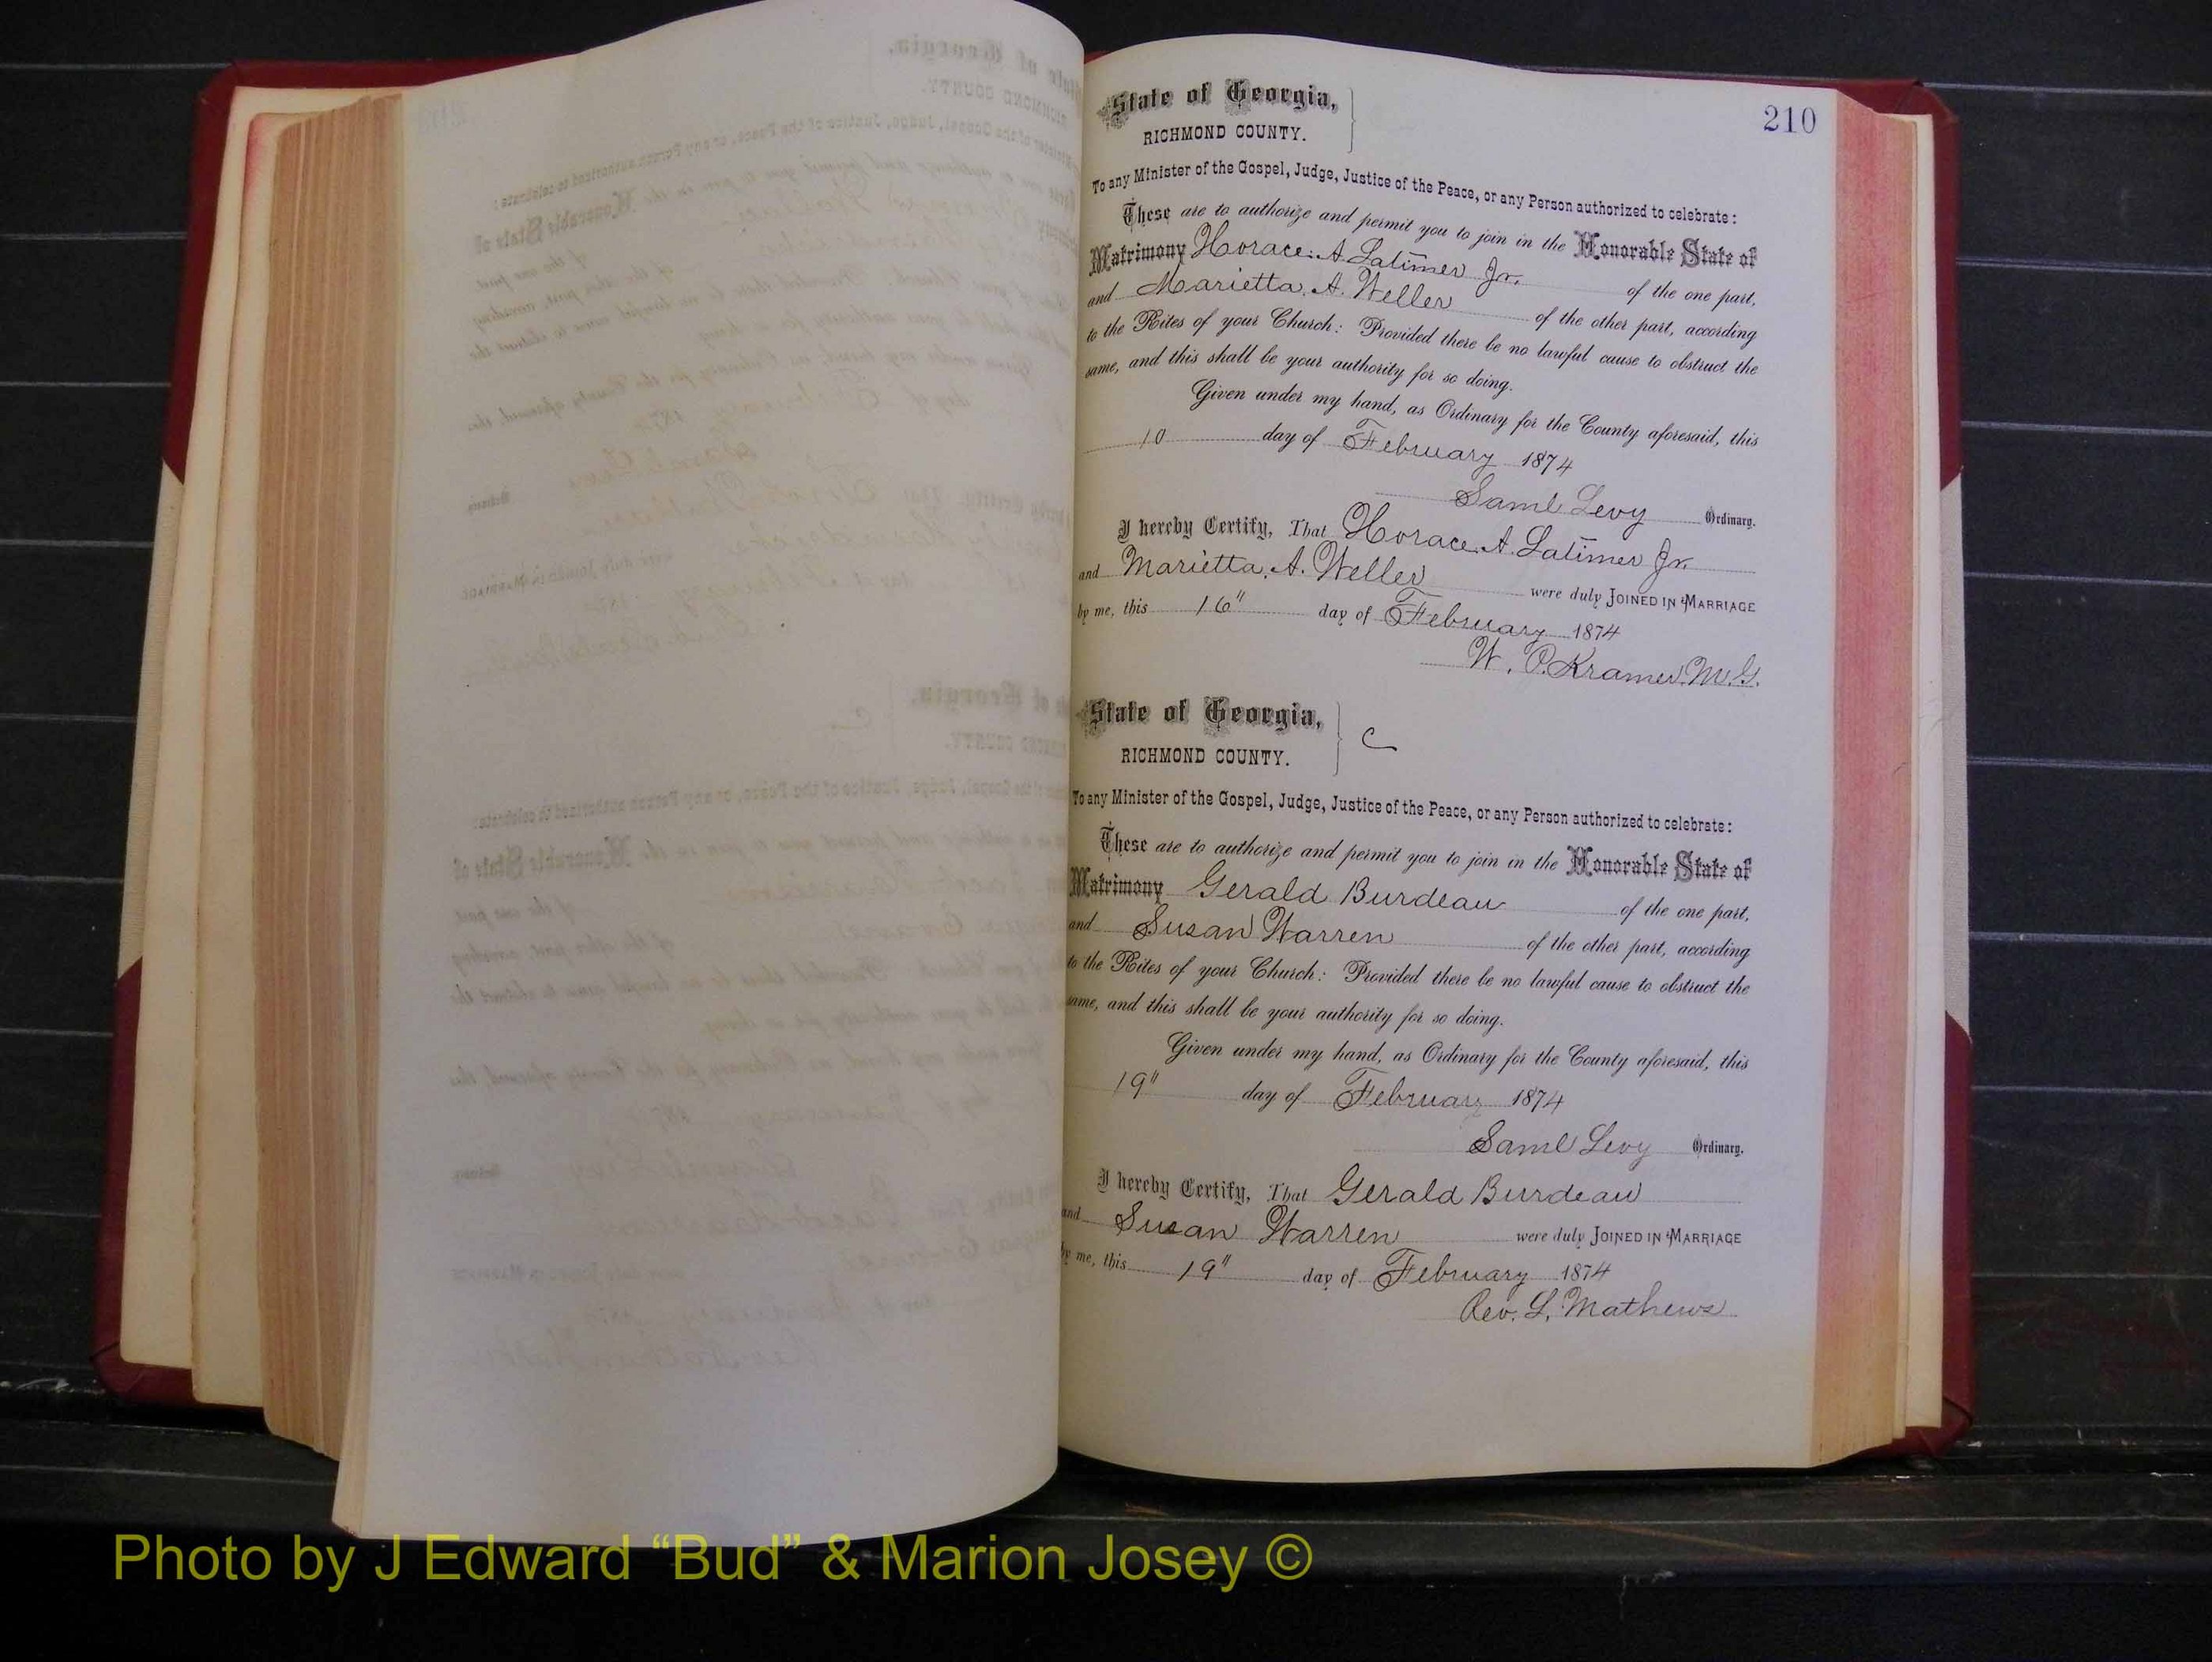 210
State of Georgia,
RICHMOND COUNTY.
To any Minister of the Gospel, Judge, Justice of the Peace, or any Person authorized to celebrate:
These are to authorize and permit you to join in the Honorable State of
Matrimony Horace. A. Latimer Jr. of the one part,
and Marietta. A. Weller of the other part, according
to the Rites of your Church: Provided there be no lawful cause to obstruct the
same, and this shall be your authority for so doing.
Given under my hand, as Ordinary for the County aforesaid, this
10 day of February 1874
Saml Levy Ordinary.
I hereby Certify, That Horace. A. Latimer Jr.
and Marietta. A. Weller were duly JOINED IN MARRIAGE
by me, this 16" day of February 1874
W. P. Kramer. M. G.
State of Georgia,
RICHMOND COUNTY. C
To any Minister of the Gospel, Judge, Justice of the Peace, or any Person authorized to celebrate:
These are to authorize and permit you to join in the Honorable State of
Matrimony Gerald Burdeau of the one part,
and Susan Warren of the other part, according
to the Rites of your Church: Provided there be no lawful cause to obstruct the
same, and this shall be your authority for so doing.
Given under my hand, as Ordinary for the County aforesaid, this
19" day of February 1874
Saml Levy Ordinary.
I hereby Certify, That Gerald Burdeau
and Susan Warren were duly JOINED IN MARRIAGE
by me, this 19" day of February 1874
Rev. L. Mathews
Photo by J Edward “Bud” & Marion Josey ©